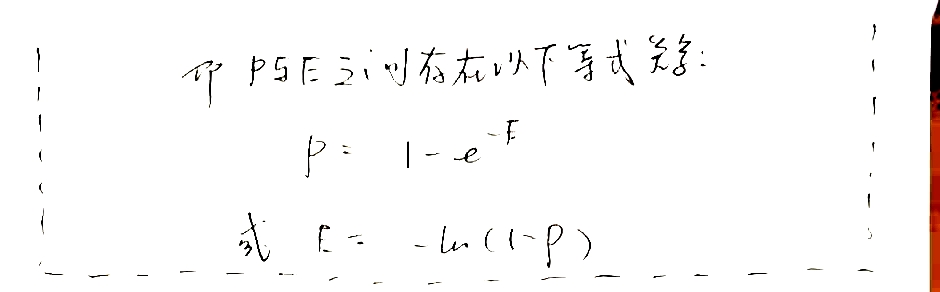 即 P与E之间存在以下等式关系:
P = 1 - e^{-E}
或 E = -ln(1-P)